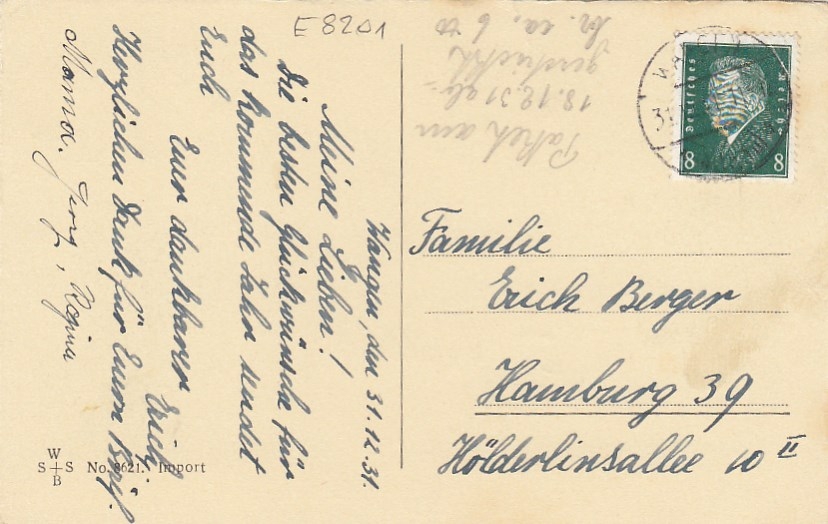 E 8201
Wangen, den 31.12.31.
Meine Lieben!
Die besten Glückwünsche für
das kommende Jahr sendet
Euch
Euer dankbarer Erich
Herzlichen Dank für Euren Brief.
Mama. Georg, Regina
Paket am
18.12.31 ab-
geschickt
W
S+S No. 8621. Import
B
Deutsches Reich
8 8
WANGEN
31.
Familie
Erich Berger
Hamburg 39
Hölderlinsallee 10 II